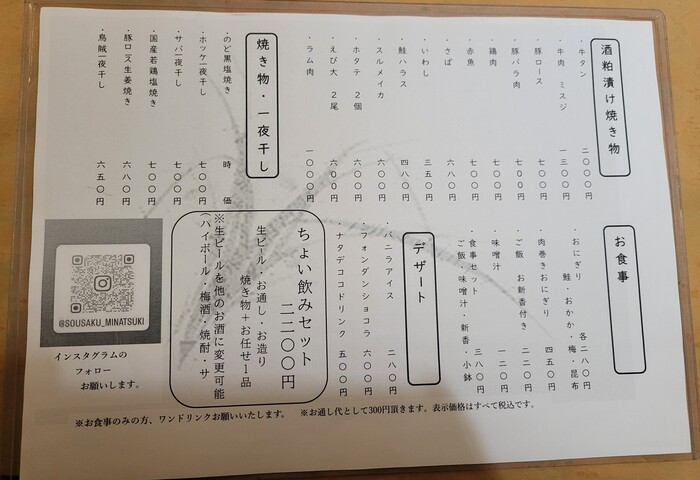 酒粕漬け焼き物
・牛タン 二〇〇〇円
・牛肉 ミスジ 一三〇〇円
・豚ロース 七〇〇円
・豚バラ肉 七〇〇円
・鶏肉 七〇〇円
・赤魚 七〇〇円
・さば 六八〇円
・いわし 三五〇円
・鮭ハラス 四八〇円
・スルメイカ 六〇〇円
・ホタテ 2個 六〇〇円
・えび大 2尾 六〇〇円
・ラム肉 一〇〇〇円
焼き物・一夜干し
・のど黒塩焼き 時価
・ホッケ一夜干し 七〇〇円
・サバ一夜干し 七〇〇円
・国産若鶏塩焼き 七〇〇円
・豚ロース生姜焼き 六八〇円
・烏賊一夜干し 六五〇円
お食事
・おにぎり
鮭・おかか・梅・昆布 各二八〇円
・肉巻きおにぎり 四五〇円
・ご飯 お新香付き 二二〇円
・味噌汁 一二〇円
・食事セット 三八〇円
ご飯・味噌汁・新香・小鉢
デザート
・バニラアイス 二八〇円
・フォンダンショコラ 六〇〇円
・ナタデココドリンク 五〇〇円
ちょい飲みセット
二二〇〇円
生ビール・お通し・お造り
焼き物+お任せ1品
※生ビールを他のお酒に変更可能
(ハイボール・梅酒・焼酎・サ
@SOUSAKU_MINATSUKI
インスタグラムの
フォロー
お願いします。
※お食事のみの方、ワンドリンクお願いいたします。 ※お通し代として300円頂きます。表示価格はすべて税込です。